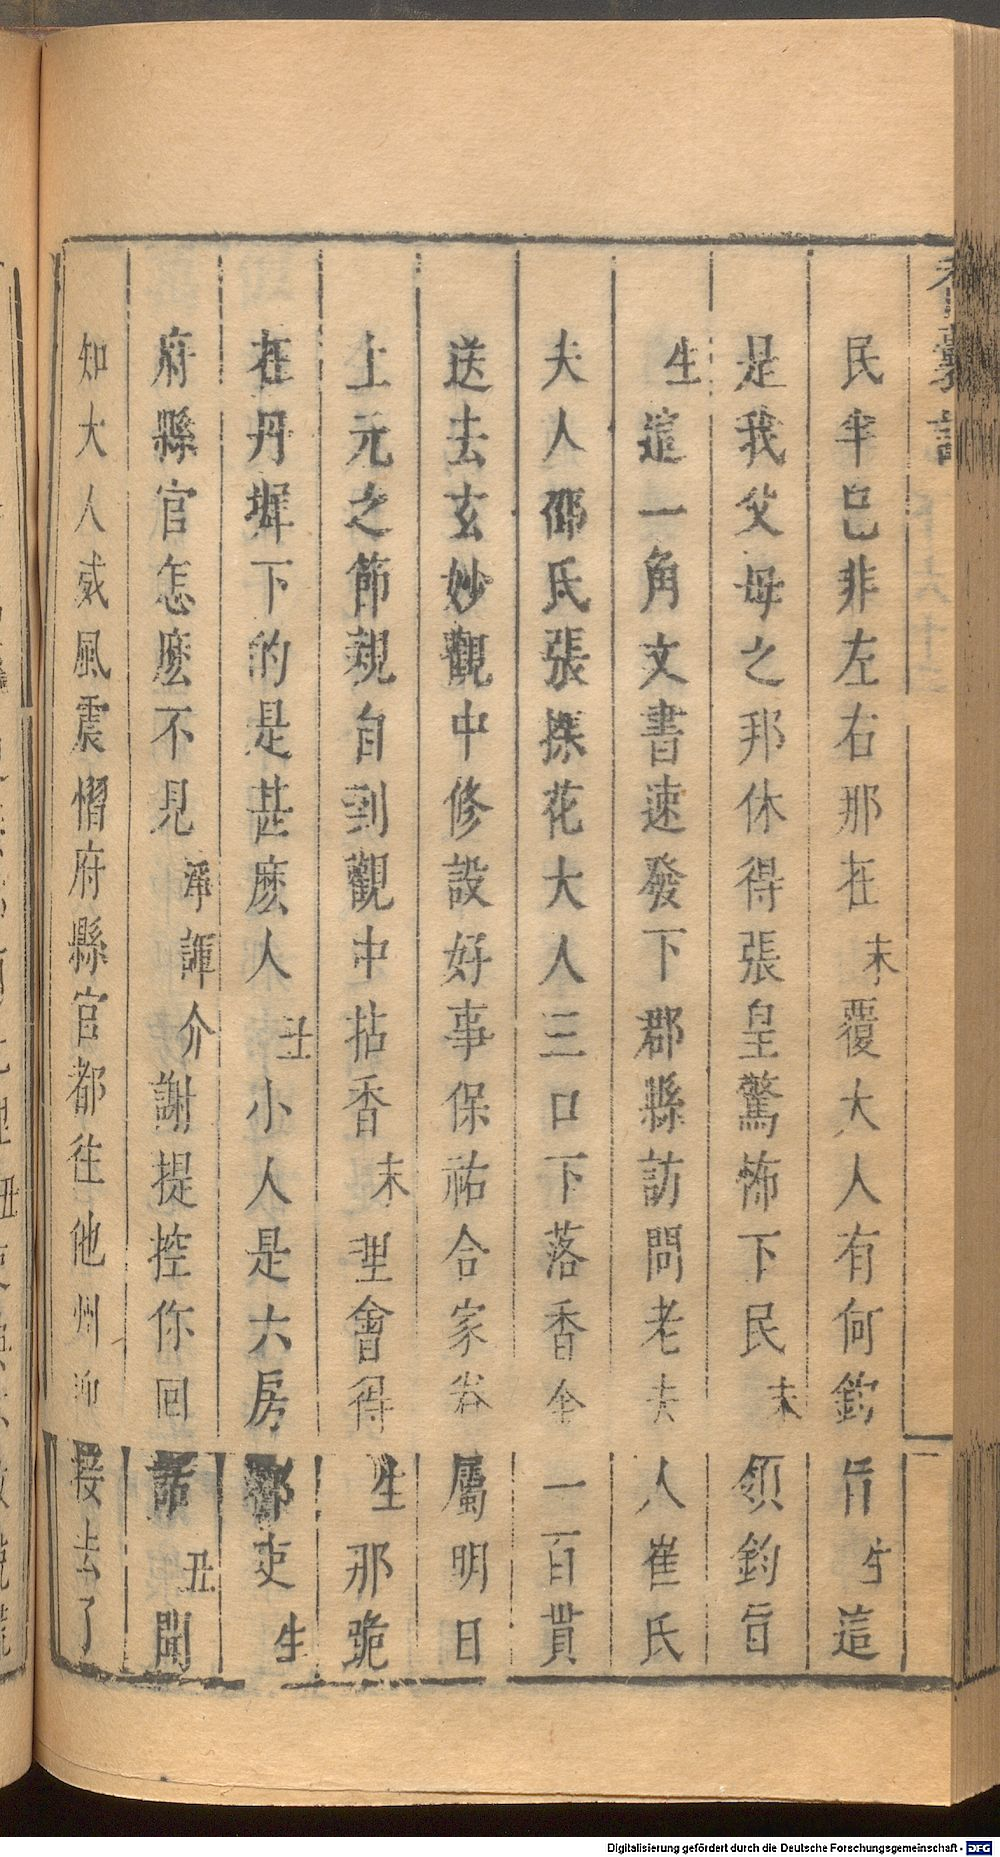 香囊記
民牟邑非左右那在末覆大人有何鈞旨生這
是我父母之邦休得張皇驚怖下民末領鈞旨
生這一角文書速發下郡縣訪問老夫人崔氏
夫人邵氏張探花大人三口下落香金一百貫
送去玄妙觀中修設好事保祐合家眷屬明日
上元之節親自到觀中拈香末理會得生那跪
在丹墀下的是甚麽人丑小人是六房都吏生
府縣官怎麽不見淨諢介謝提控你回話丑聞
知大人威風震慴府縣官都往他州迎接去了
Digitalisierung gefördert durch die Deutsche Forschungsgemeinschaft - DFG